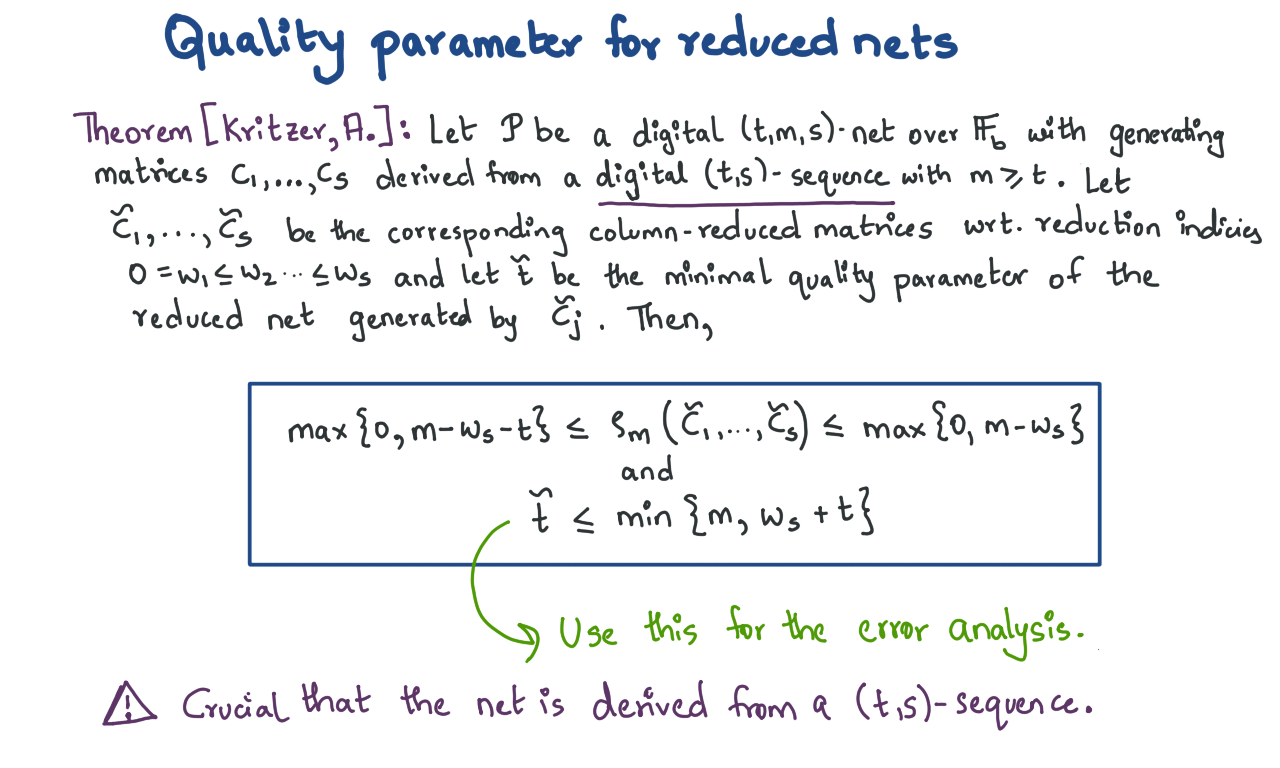 Quality parameter for reduced nets
Theorem [Kritzer, A.]: Let P be a digital (t,m,s)-net over 𝔽_b with generating
matrices C₁,...,Cₛ derived from a digital (t,s)-sequence with m ≥ t. Let
C̃₁,...,C̃ₛ be the corresponding column-reduced matrices wrt. reduction indicies
0 = w₁ ≤ w₂ ... ≤ wₛ and let t̃ be the minimal quality parameter of the
reduced net generated by C̃ⱼ. Then,
max{0, m-wₛ-t} ≤ ρₘ(C̃₁,...,C̃ₛ) ≤ max{0, m-wₛ}
and
t̃ ≤ min {m, wₛ + t}
Use this for the error analysis.
⚠ Crucial that the net is derived from a (t,s)-sequence.